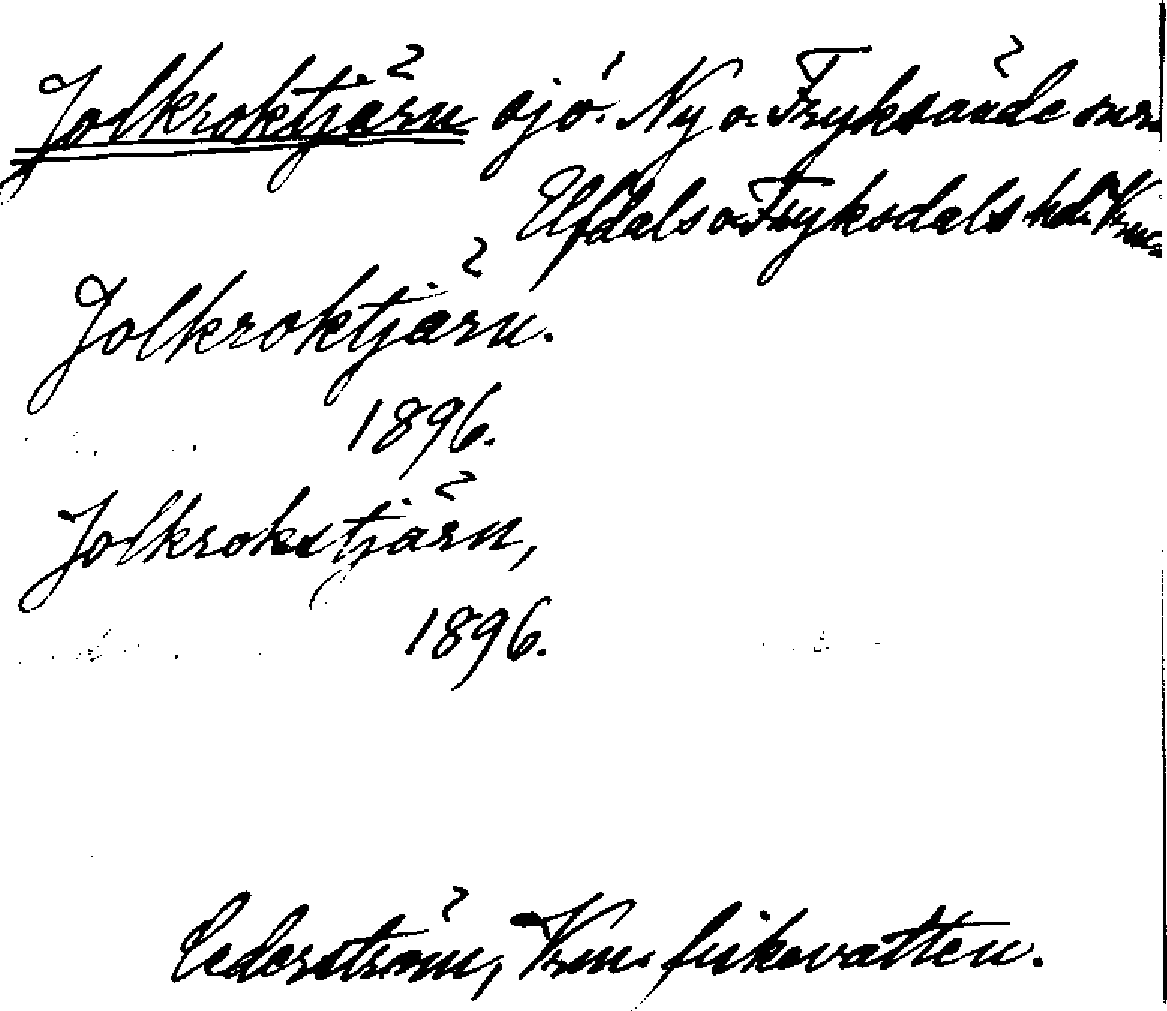 Jolkroktjärn sjö. Ny o. Fryksände snr
Elfdals o Fryksdals hd. Vrml.
Jolkroktjärn.
1896.
Jolkrokstjärn,
1896.
Cederström, Vrm. fiskevatten.